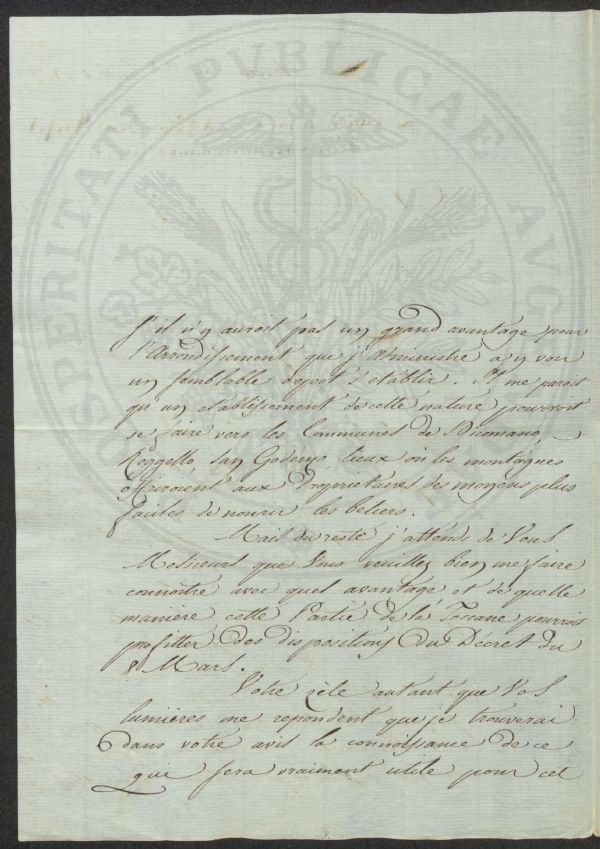 PROSPERITATI PUBLICAE AUG
s'il n'y auroit pas un grand avantage pour
l'Arrondissement que j'administre a y voir
un semblable depot s'etablir. Il me paroit
qu'un etablissement de cette nature pourroit
se faire vers les Communes de Dicomano,
Reggello, San Godenzo, lieux où les montagnes
offriroient aux Proprietaires des moyens plus
faciles de nourir les beliers.
Mais du reste j'attends de Vous
Messieurs que Vous veuillez bien me faire
connoitre avec quel avantage et de quelle
manière cette Partie de la Toscane pourroit
profitter des dispositions du Décret du
8 Mars.
Votre zèle autant que Vos
lumières me repondent que je trouverai
dans votre avis la connoissance de ce
qui sera vraiment utile pour cet